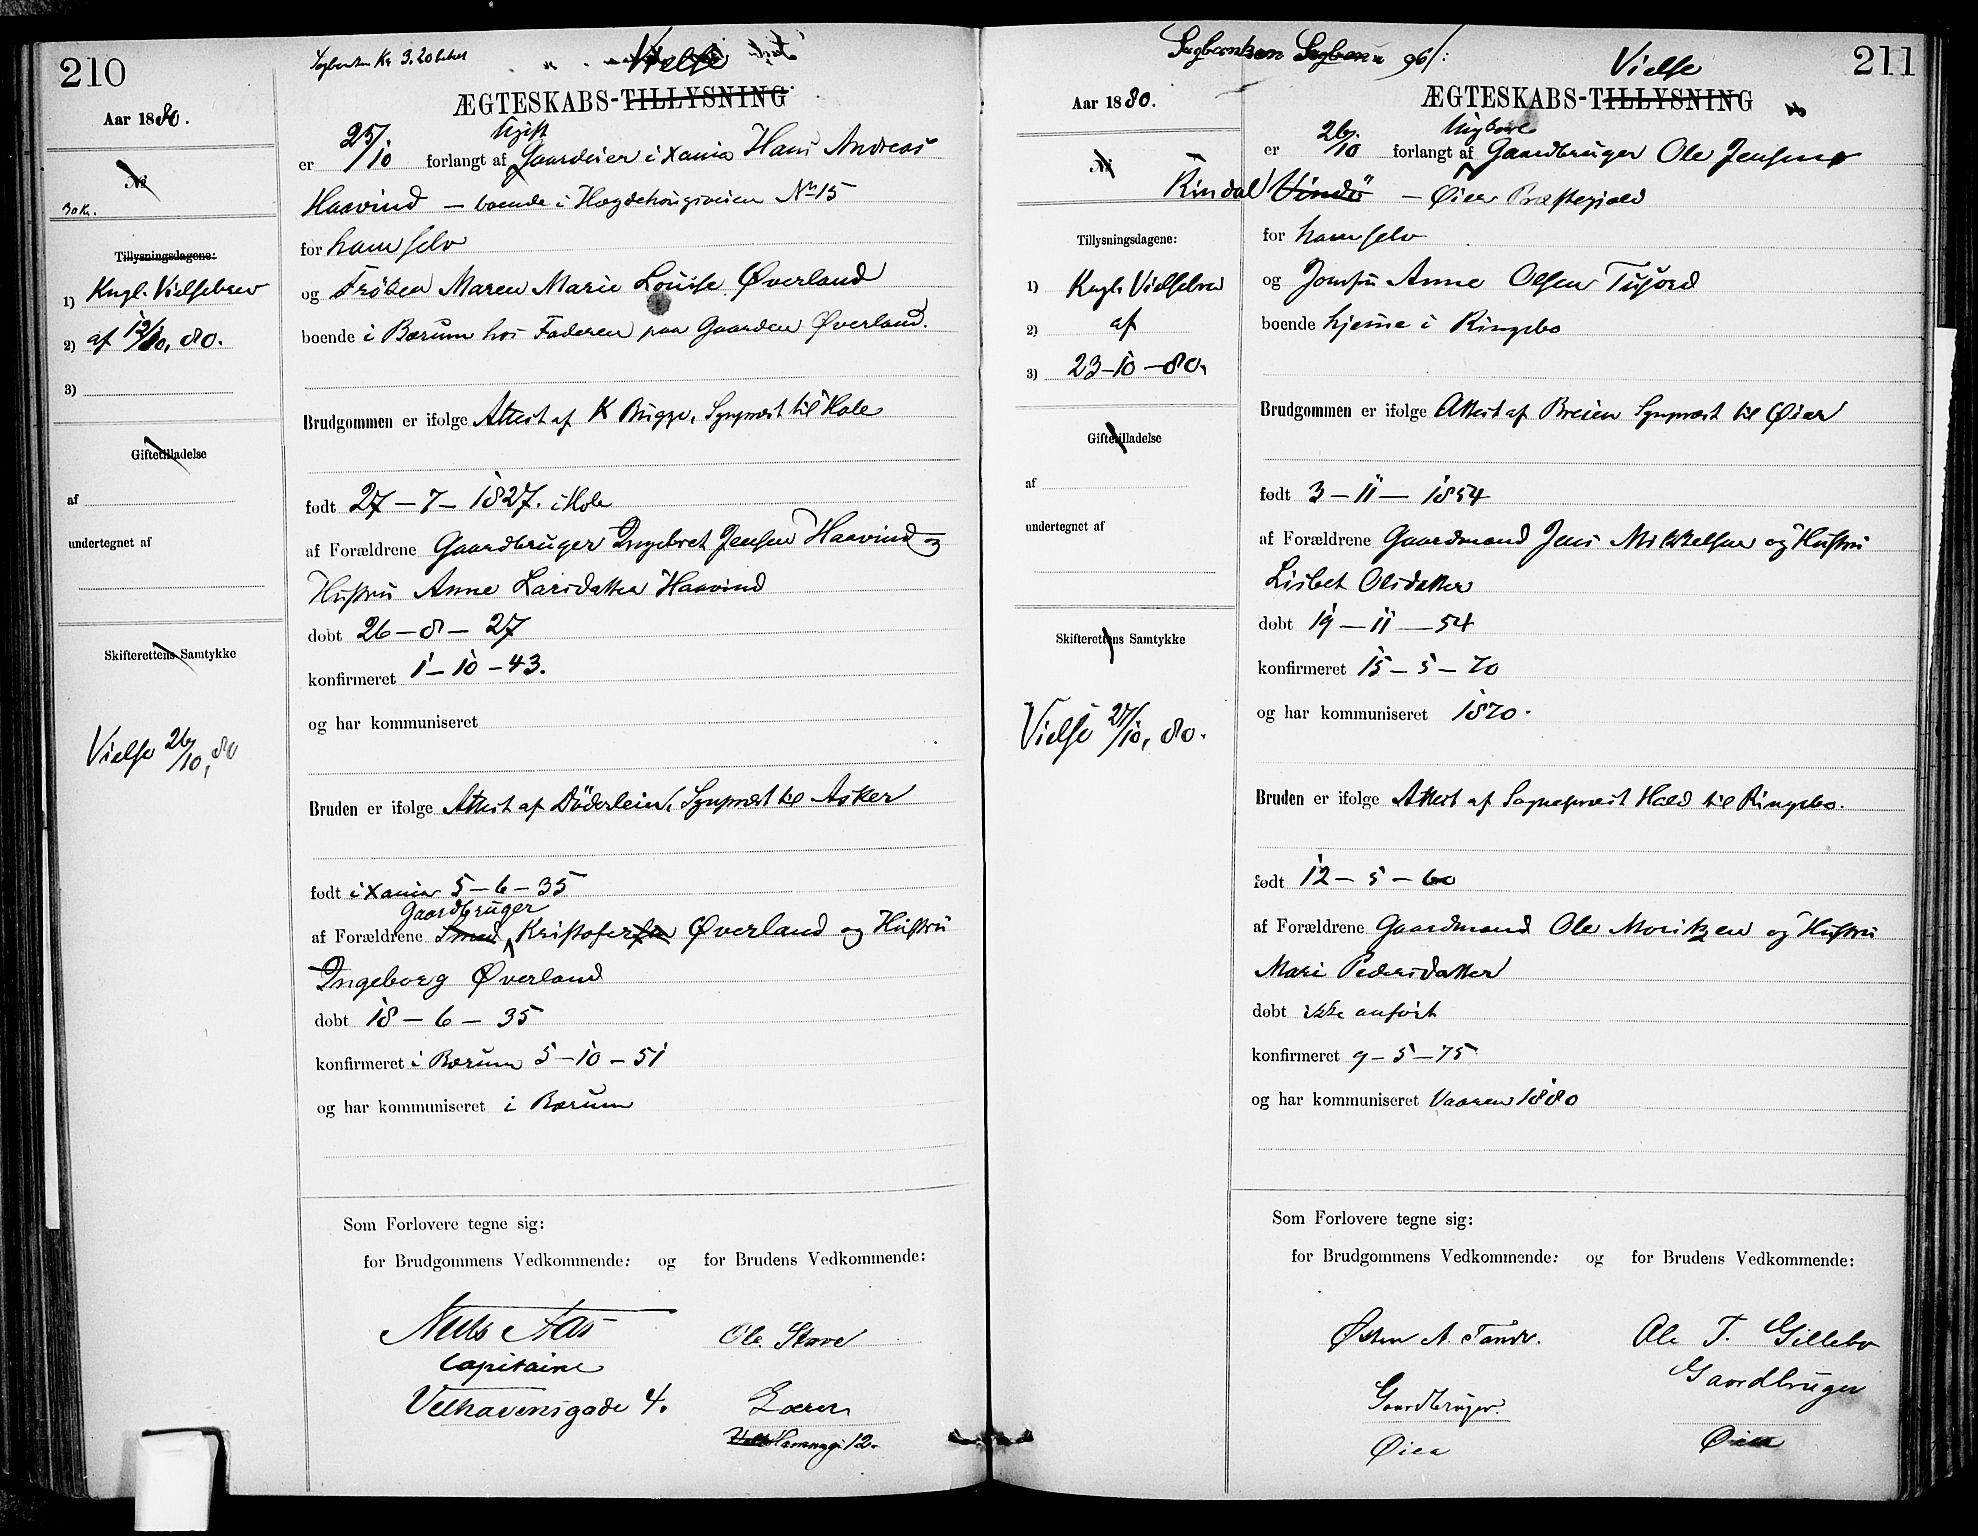 210
Aar 1880.
No
30 Kr.
Tillysningsdagene:
1) Kngl. Vielsebrev
2) af 12/10, 80.
3)
Giftetilladelse
af
undertegnet af
Skifterettens Samtykke
Vielse 26/10, 80
Kr. 3.
Vielse
ÆGTESKABS-TILLYSNING
Ugift
er 25/10 forlangt af Gaardeier i Xania Hans Andreas
Haavind — boende i Hægdehougsveien No 15
for ham selv
og Frøken Maren Marie Louise Øverland
boende i Bærum hos Faderen paa Gaarden Øverland.
Brudgommen er ifølge Attest af K Bugge, Sgnpræst til Hole
født 27 – 7 – 1827. i Hole
af Forældrene Gaardbruger Ingebret Jensen Haavind og
Hustru Anne Larsdatter Haavind
døbt 26 – 8 – 27
konfirmeret 1 – 10 – 43.
og har kommuniseret
Bruden er ifølge Attest af Döderlein, Sgnpræst til Asker
født i Xania 5 – 6 – 35
Gaardbruger
af Forældrene Smed Kristofersen Øverland og Hustru
Ingeborg Øverland
døbt 18 – 6 – 35
konfirmeret i Bærum 5 – 10 – 51
og har kommuniseret i Bærum
Som Forlovere tegne sig:
for Brudgommens Vedkommende: og for Brudens Vedkommende:
Niels Aas
Ole Stave
Capitaine
Velhavensgade 4.
Lærer
12.
211
Aar 1880.
No
Tillysningsdagene:
1) Kngl. Vielsebrev
2) af
3) 23–10–80.
Giftetilladelse
af
undertegnet af
Skifterettens Samtykke
Vielse 27/10, 80.
Vielse
ÆGTESKABS-TILLYSNING
Ungkarl
er 26/10 forlangt af Gaardbruger Ole Jensen
Rindal — Øier Præstegjæld
for ham selv
og Jomfru Anne Olsen
boende hjeme i Ringebo
Brudgommen er ifølge Attest af Breien Sgnpræst til Øier
født 3 – 11 – 1854
af Forældrene Gaardmand Jens Mikkelsen og Hustru
Lisbet Olsdatter
døbt 19 – 11 – 54
konfirmeret 15 – 5 – 70
og har kommuniseret 1870.
Bruden er ifølge Attest af Sognepræst Hald til Ringebo.
født 12 – 5 – 60
af Forældrene Gaardmand Ole Moritzen og Hustru
Mari Pedersdatter
døbt ikke anført
konfirmeret 9 – 5 – 75
og har kommuniseret Vaaren 1880
Som Forlovere tegne sig:
for Brudgommens Vedkommende: og for Brudens Vedkommende:
Østen A. Tande.
Ole T. Gillebo
Gaardbruger.
Gaardbruger
Øier
Øier